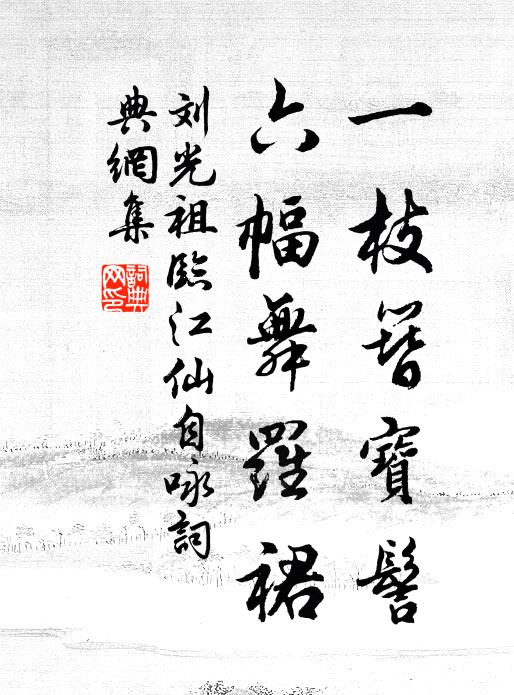 一枝簪寶髻
六幅舞羅裙
刘光祖臨江仙自咏詞
典網集
詞典
网印